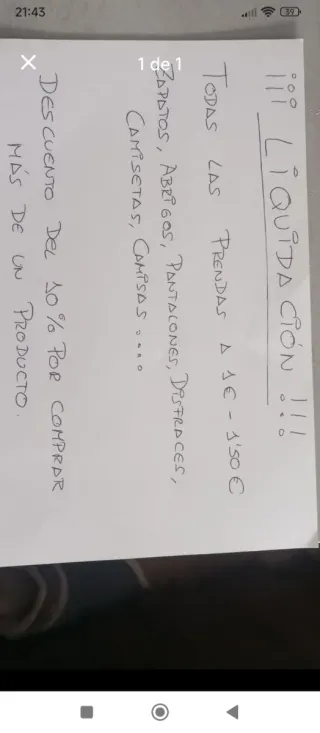 21:43
39
1 de 1
¡¡¡ LIQUIDACIÓN !!!...
TODAS LAS PRENDAS A 1€ - 1'50€
ZAPATOS, ABRIGOS, PANTALONES, DISFRACES,
CAMISETAS, CAMISAS....
DESCUENTO DEL 10% POR COMPRAR
MÁS DE UN PRODUCTO.